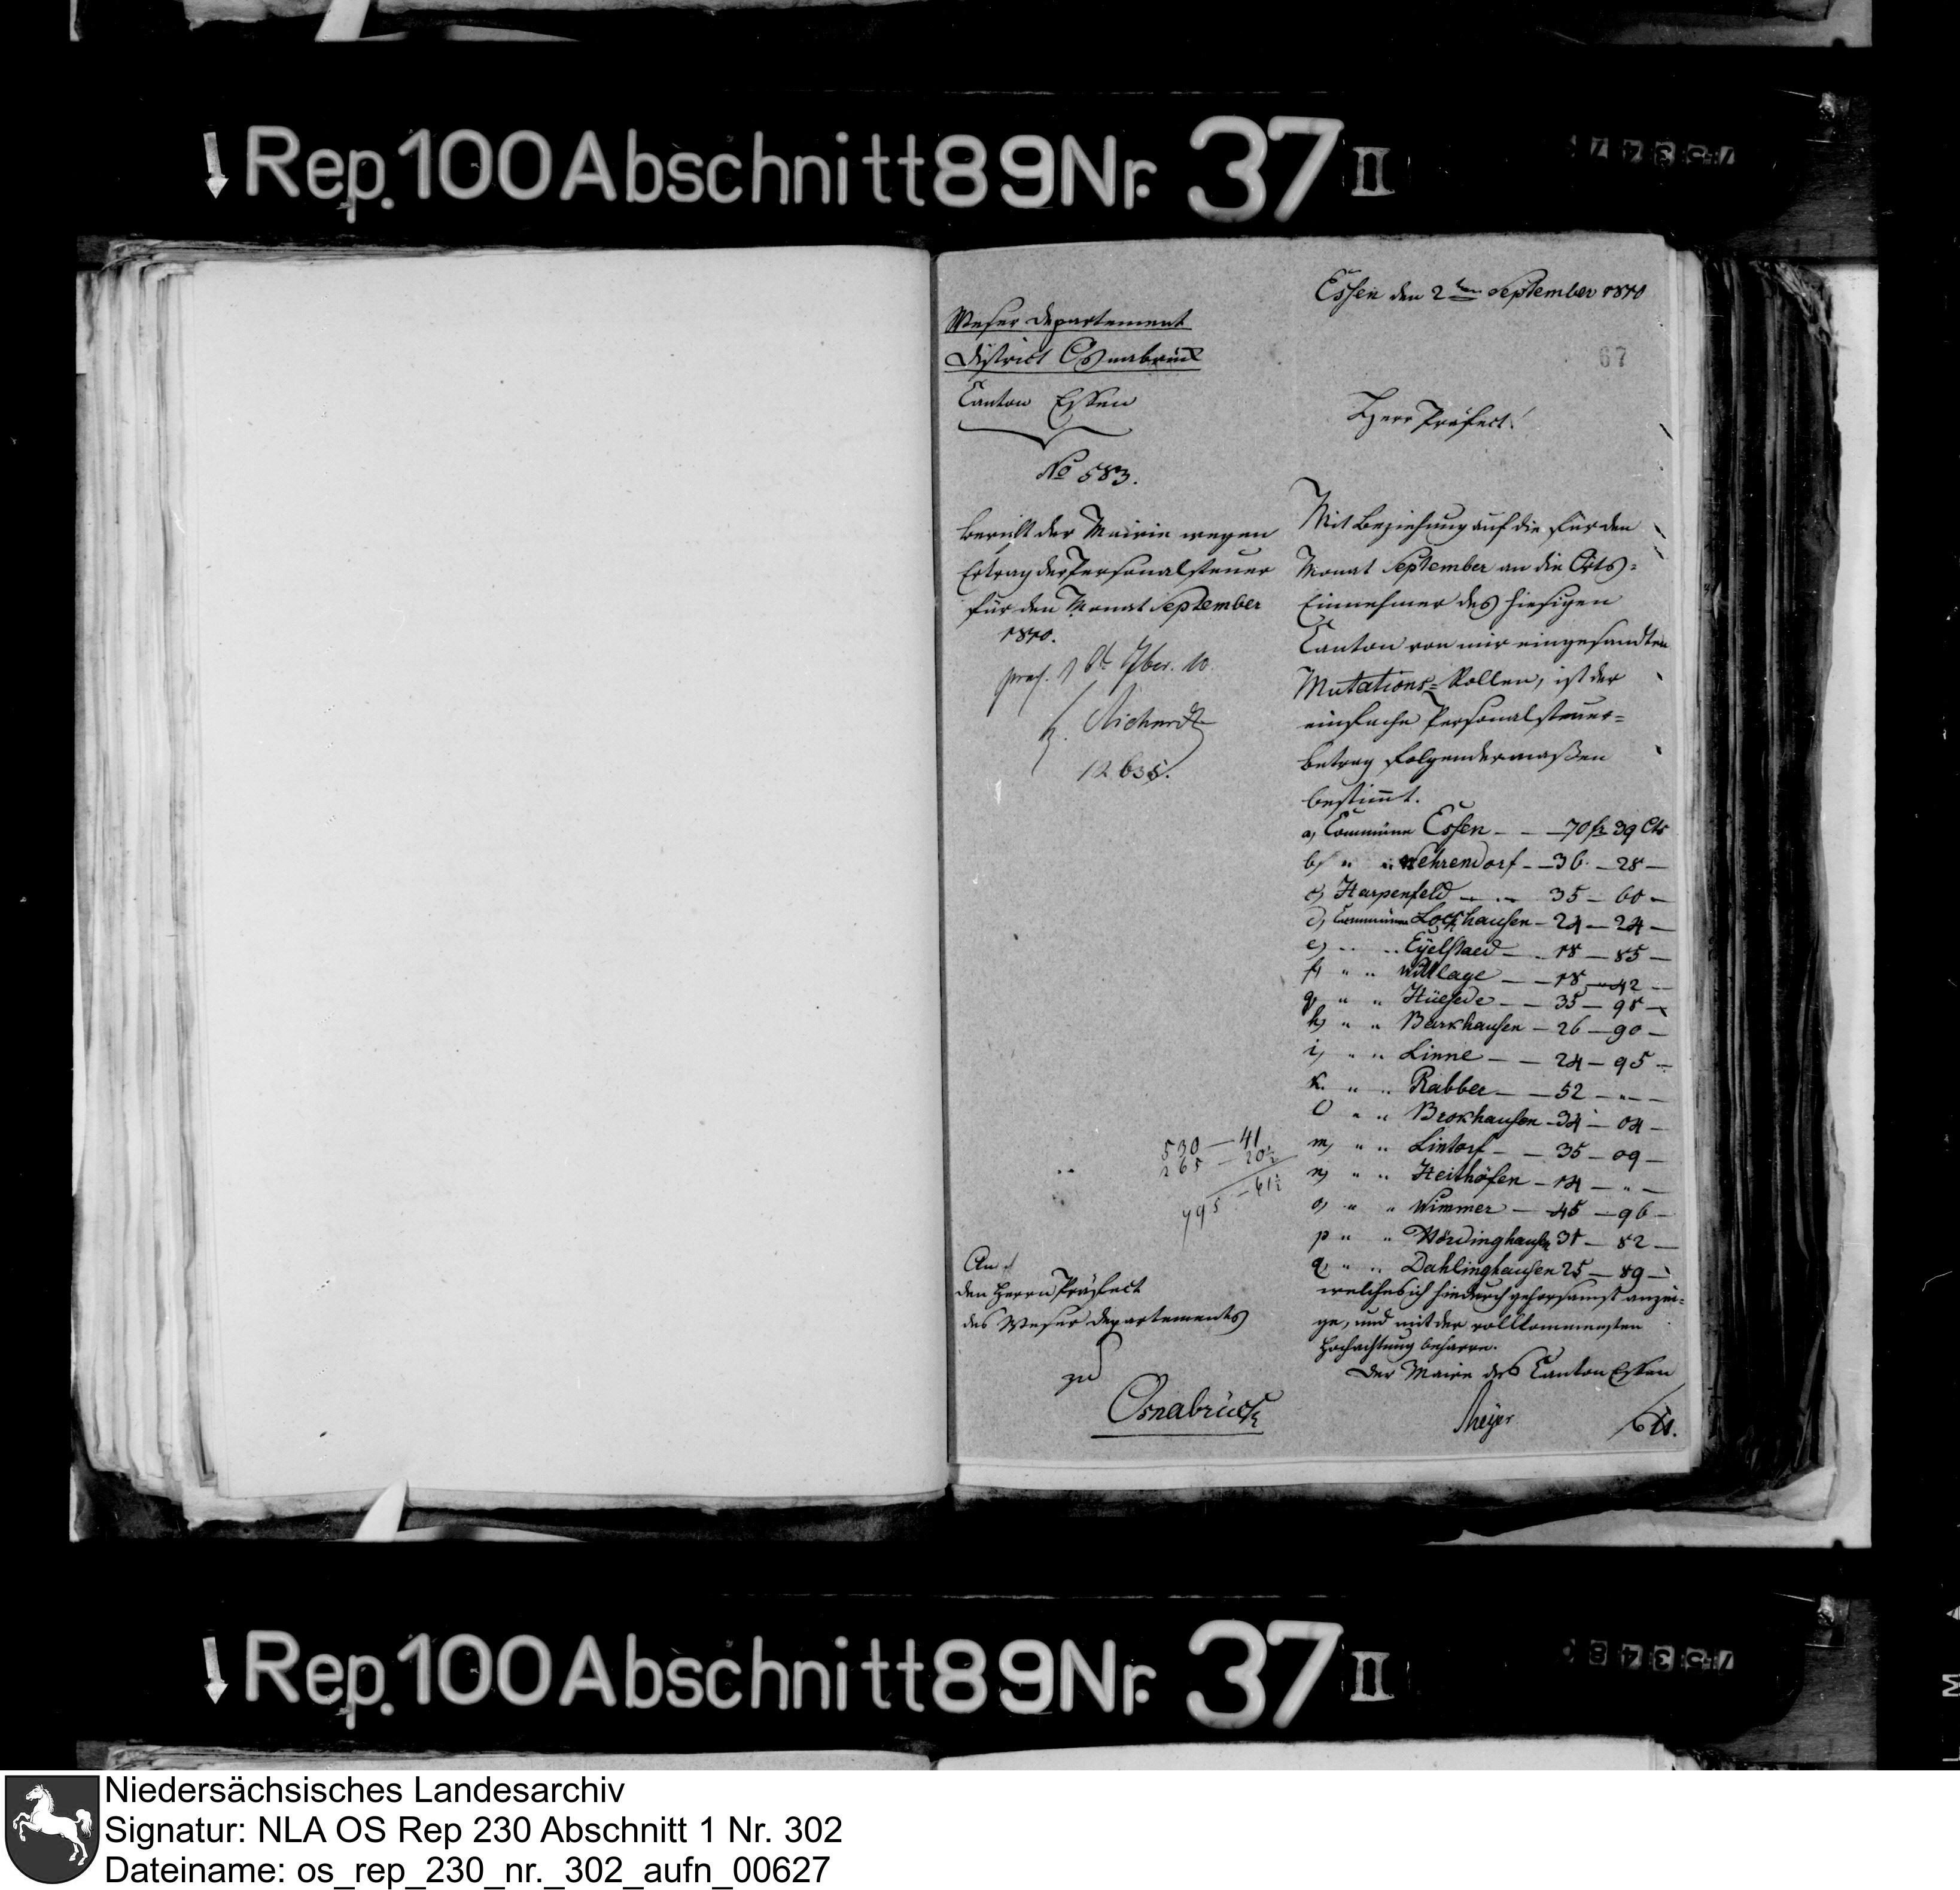 Rep. 100 Abschnitt 89 Nr. 37 II
Essen den 2ten September 1810
67
Weser Departement
District Osnabrück
Canton Essen
No 583.
Bericht der Mairie wegen
Ertrag der Personalsteuer
für den Monat September
1810.
12635.
Herr Präfect!
Mit Beziehung auf die für den
Monat September an die Orts=
Einnehmer des hiesigen
Canton von mir eingesandten
Mutations=Rollen, ist der
einfache Personalsteuer=
betrag folgendermaßen
bestimmt.
a) Commüne Essen - - 70 fr 39 Cts
b) " " Wehrendorf - 36 - 28 -
c) Harpenfeld - - 35 - 60 -
d) Commüne Lockhausen - 24 - 24 -
e) " " Eÿelstaed - 18 - 85 -
f) " " Wittlage - - 18 - 42 -
g) " " Hüesede - - 35 - 98 -
h) " " Barkhausen - 26 - 90 -
i) " " Linne - - 24 - 95 -
k. " " Rabber - - 52 - " -
l) " " Brokhausen - 34 - 04 -
m) " " Lintorf - - 35 - 09 -
n) " " Heithöfen - 14 - " -
o) " " Wimmer - 45 - 96 -
p " " Hördinghausen 31 - 82 -
q) " " Dahlinghausen 25 - 89 -
welches ich hiedurch gehorsamst anzei=
ge, und mit der vollkommensten
Hochachtung beharre.
Der Maire des Canton Essen
Meÿer
530 - 41
265 - 20½
795 - 61½
An
den Herrn Präfect
des Weser Departements
zu
Osnabrück
Rep. 100 Abschnitt 89 Nr. 37 II
Niedersächsisches Landesarchiv
Signatur: NLA OS Rep 230 Abschnitt 1 Nr. 302
Dateiname: os_rep_230_nr._302_aufn_00627